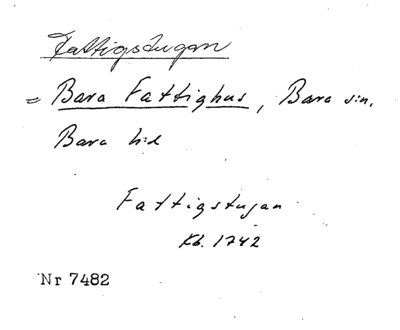 Fattigstugan
= Bara Fattighus, Bara sn,
Bara hd
Fattigstugan
Kb. 1742
Nr 7482